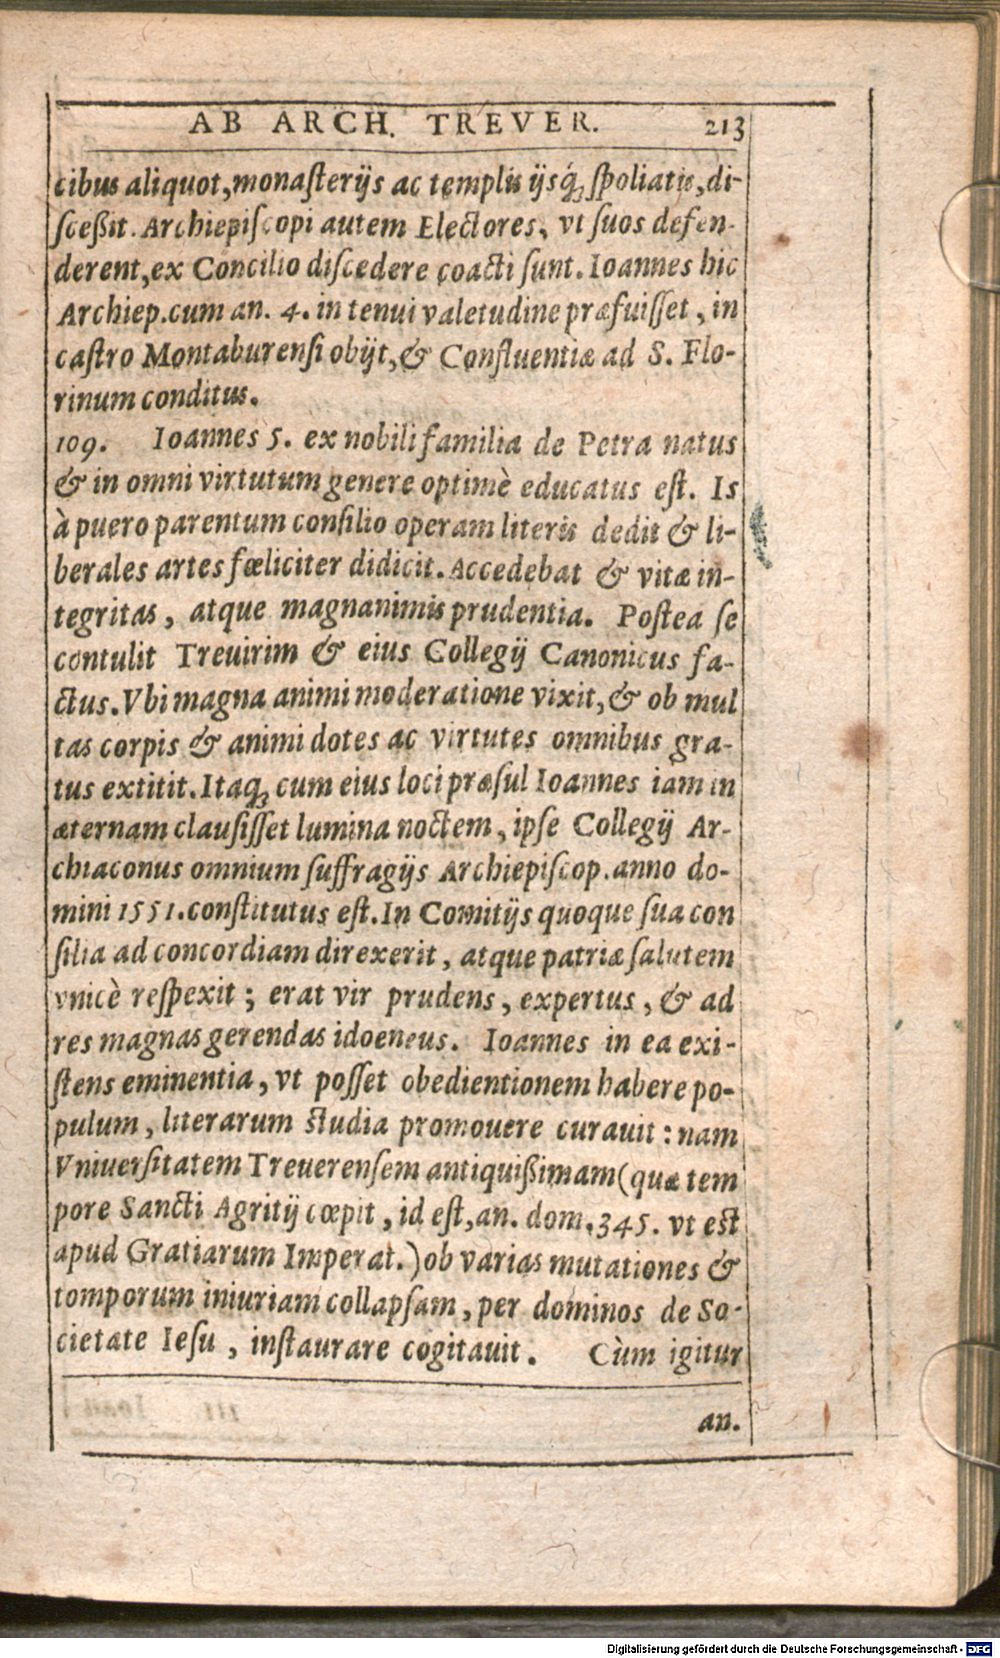 AB ARCH. TREVER. 213
cibus aliquot, monasterijs ac templis ijsq́; spoliatis, di-
sceßit. Archiepiscopi autem Electores, vt suos defen-
derent, ex Concilio discedere coacti sunt. Ioannes hic
Archiep. cum an. 4. in tenui valetudine præfuisset, in
castro Montaburensi obijt, & Confluentiæ ad S. Flo-
rinum conditus.
109. Ioannes 5. ex nobili familia de Petra natus
& in omni virtutum genere optimè educatus est. Is
à puero parentum consilio operam literis dedit & li-
berales artes fœliciter didicit. Accedebat & vitæ in-
tegritas, atque magnanimis prudentia. Postea se
contulit Treuirim & eius Collegij Canonicus fa-
ctus. Vbi magna animi moderatione vixit, & ob mul
tas corpis & animi dotes ac virtutes omnibus gra-
tus extitit. Itaq; cum eius loci præsul Ioannes iam in
æternam clausisset lumina noctem, ipse Collegij Ar-
chiaconus omnium suffragijs Archiepiscop. anno do-
mini 1551. constitutus est. In Comitijs quoque sua con
silia ad concordiam direxerit, atque patriæ salutem
vnicè respexit; erat vir prudens, expertus, & ad
res magnas gerendas idoeneus. Ioannes in ea exi-
stens eminentia, vt posset obedientionem habere po-
pulum, literarum studia promouere curauit: nam
Vniuersitatem Treuerensem antiquißimam (quæ tem
pore Sancti Agritij cœpit, id est, an. dom. 345. vt est
apud Gratiarum Imperat.) ob varias mutationes &
tomporum iniuriam collapsam, per dominos de So-
cietate Iesu, instaurare cogitauit. Cùm igitur
an.
Digitalisierung gefördert durch die Deutsche Forschungsgemeinschaft - DFG